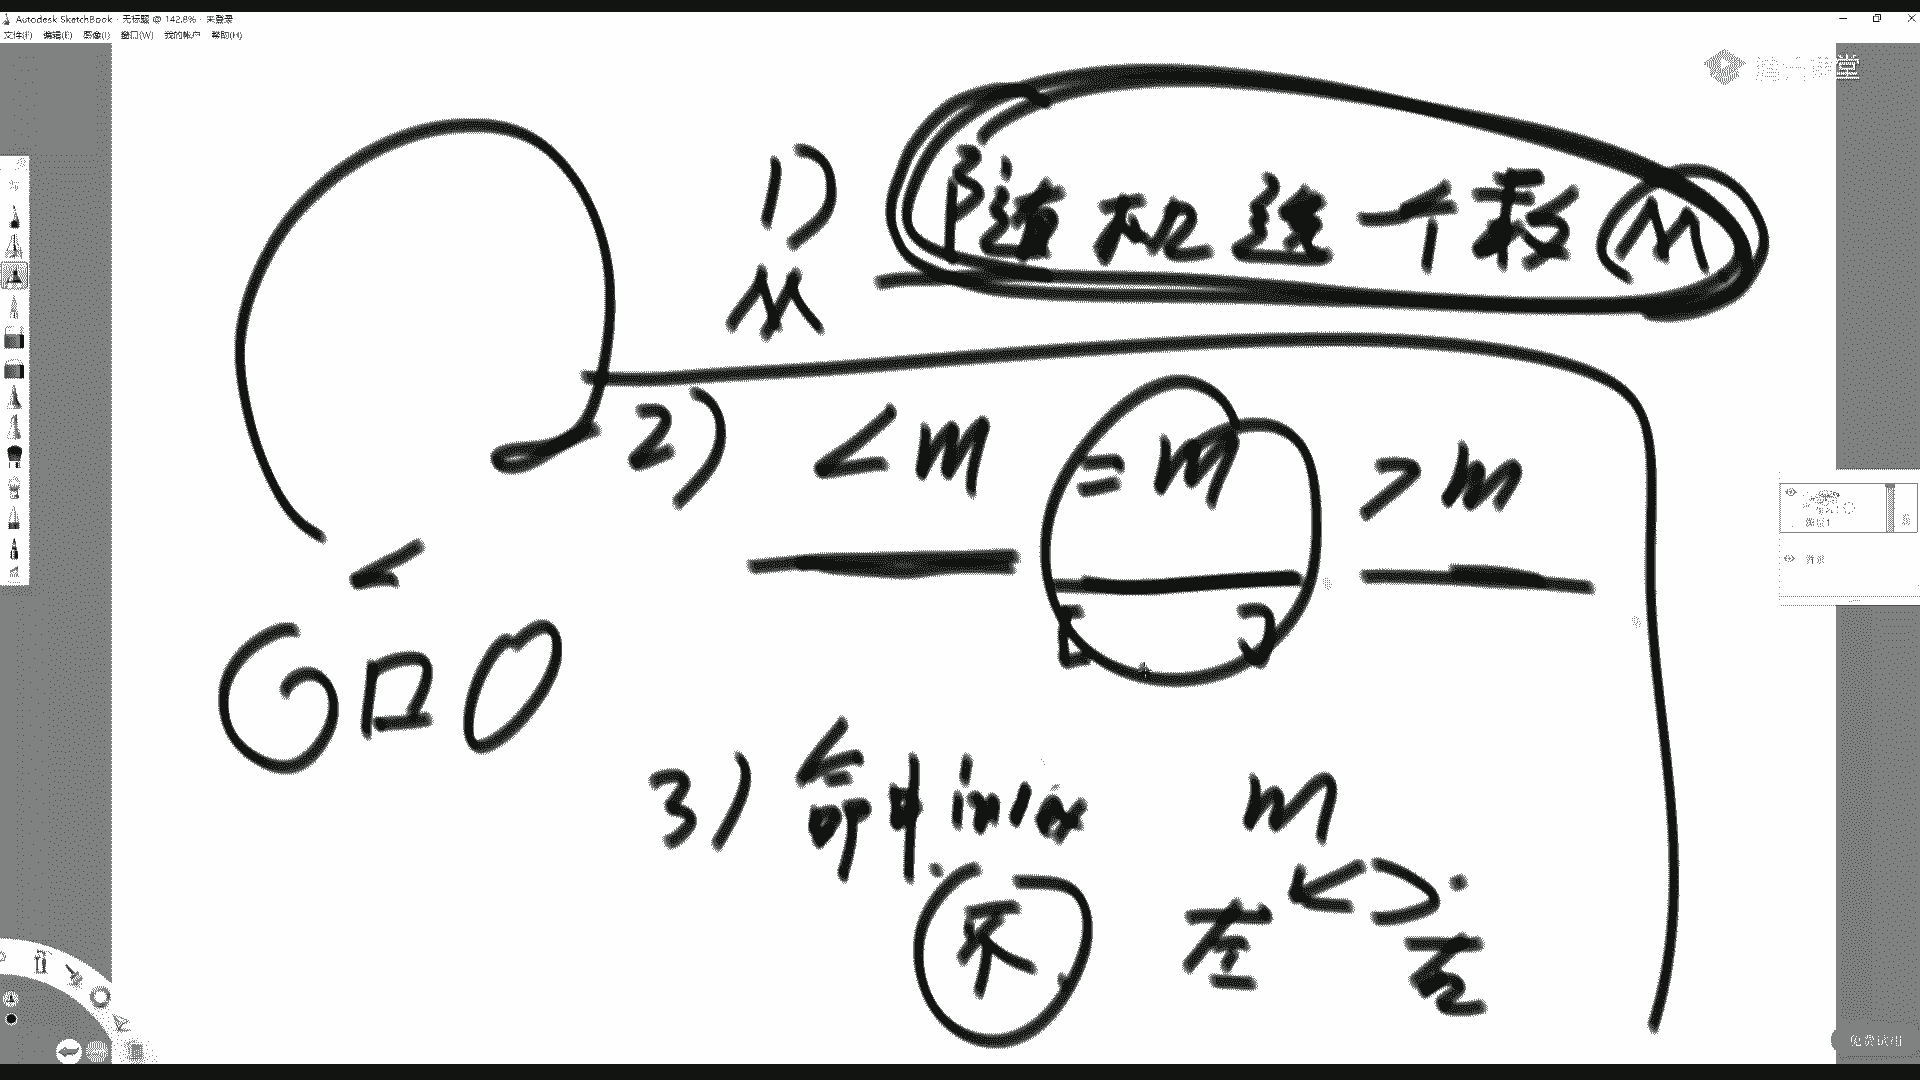 Autodesk SketchBook - 无标题 @ 142.8% - 未登录
文件(F) 编辑(E) 图像(I) 窗口(W) 我的帐户 帮助(H)
1) 随机选一个数 M
M
2) <m =m >m
[ ]
3) 命中 index m
不 左 右
免费试用